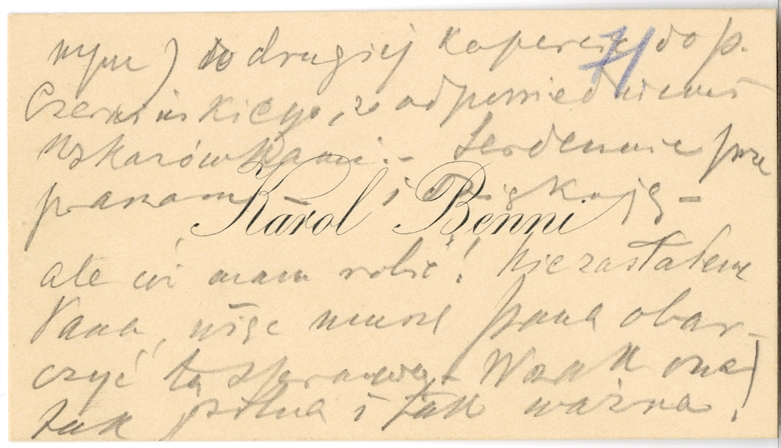 nym) do drugiej koperty do p.
71
Czermińskiego, z odpowiedniemi
wskazówkami. – Serdecznie prze
praszam i dziękuję –
Karol Benni
ale cóż mam robić! Nie zastałem
Pana, więc muszę Pana obar-
czyć tą sprawą – Wszak ona
tak pilna i tak ważna!